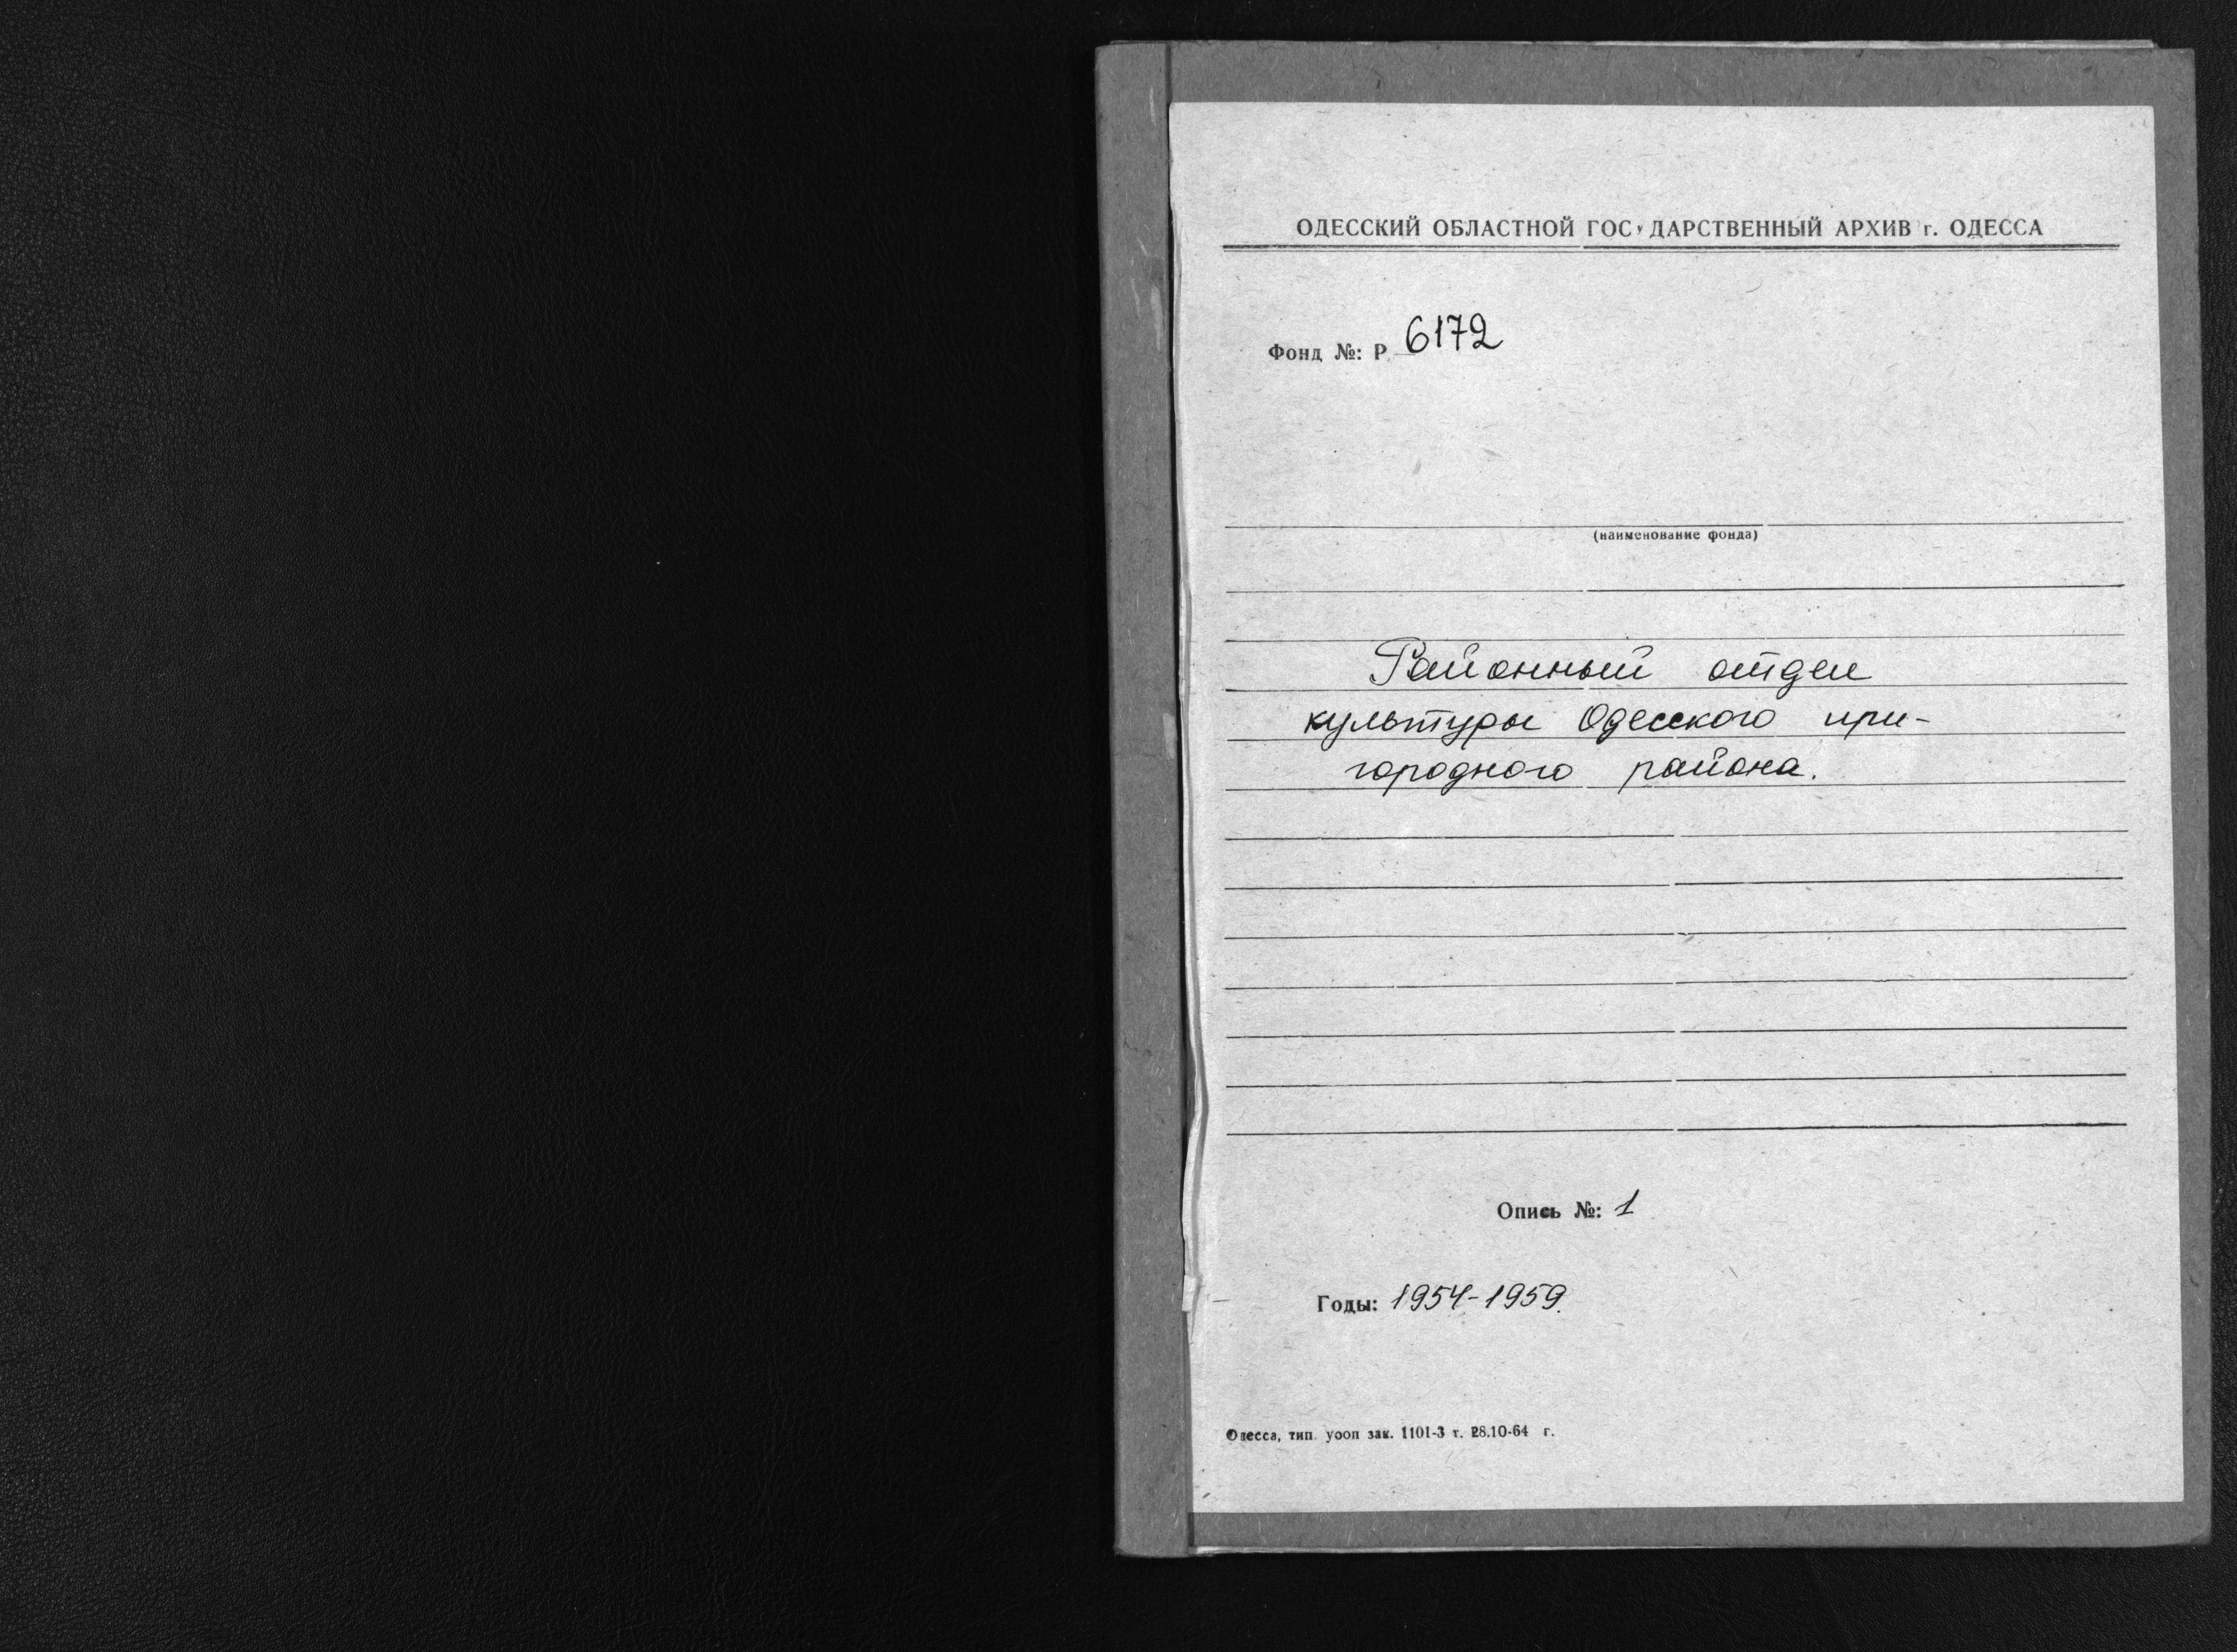 ОДЕССКИЙ ОБЛАСТНОЙ ГОСУДАРСТВЕННЫЙ АРХИВ г. ОДЕССА
Фонд №: Р 6172
(наименование фонда)
Районный отдел
культуры Одесского при-
городного района.
Опись №: 1
Годы: 1954-1959.
Одесса, тип. уооп зак. 1101-3 т. 28.10-64 г.